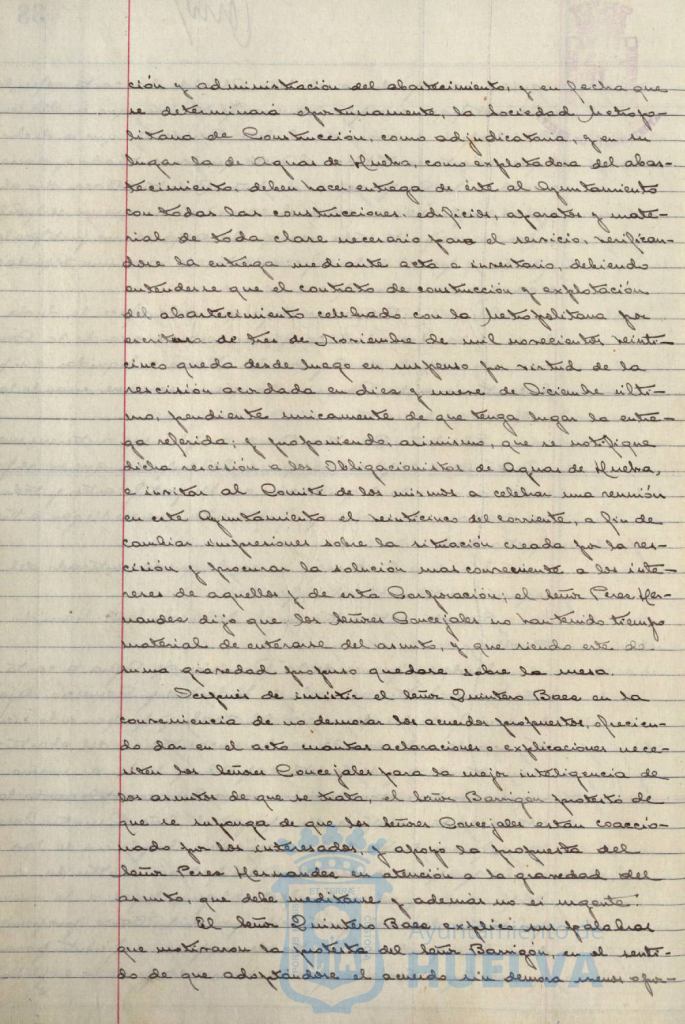 ción y administración del abastecimiento, y en fecha que
se determinará oportunamente, la Sociedad Metropo-
litana de Construcción, como adjudicataria, y en su
lugar la de Aguas de Huelva, como explotadora del abas-
tecimiento, deben hacer entrega de éste al Ayuntamiento
con todas las construcciones, edificios, aparatos y mate-
rial de toda clase necesario para el servicio, verifican-
dose la entrega mediante acta e inventario, debiendo
entenderse que el contrato de construcción y explotación
del abastecimiento celebrado con la Metropolitana por
escritura de tres de Noviembre de mil novecientos veinti-
cinco queda desde luego en suspenso por virtud de la
rescisión acordada en diez y nueve de Diciembre últi-
mo, pendiente unicamente de que tenga lugar la entre-
ga referida; y proponiendo, asimismo, que se notifique
dicha rescisión a los Obligacionistas de Aguas de Huelva,
e invitar al Comité de los mismos a celebrar una reunión
en este Ayuntamiento el veinticinco del corriente, a fin de
cambiar impresiones sobre la situación creada por la res-
cisión y procurar la solución mas conveniente a los inte-
reses de aquellos y de esta Corporación; el Señor Perez Her-
nandez dijo que los Señores Concejales no han tenido tiempo
material de enterarse del asunto, y que siendo este de
suma gravedad propuso quedase sobre la mesa.
Después de insistir el Señor Quintero Baez en la
conveniencia de no demorar los acuerdos propuestos, ofrecien-
do dar en el acto cuantas aclaraciones o explicaciones nece-
siten los Señores Concejales para la mejor inteligencia de
los asuntos de que se trata, el Señor Barrigón protestó de
que se suponga de que los Señores Concejales están coaccio-
nado por los interesados, y apoyó la propuesta del
Señor Perez Hernandez en atención a la gravedad del
asunto, que debe meditarse y además no es urgente.
El Señor Quintero Baez explicó sus palabras
que motivaron la protesta del Señor Barrigón, en el senti-
do de que adoptándose el acuerdo sin demora menos opor-
HUELVA